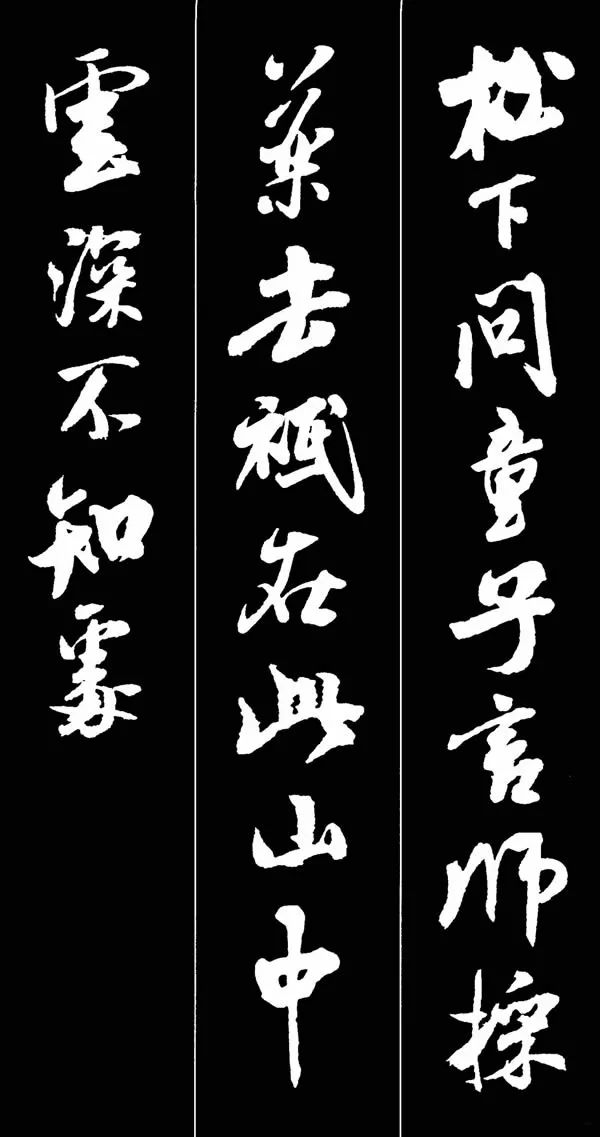 松下問童子言師採
藥去祗在此山中
雲深不知處